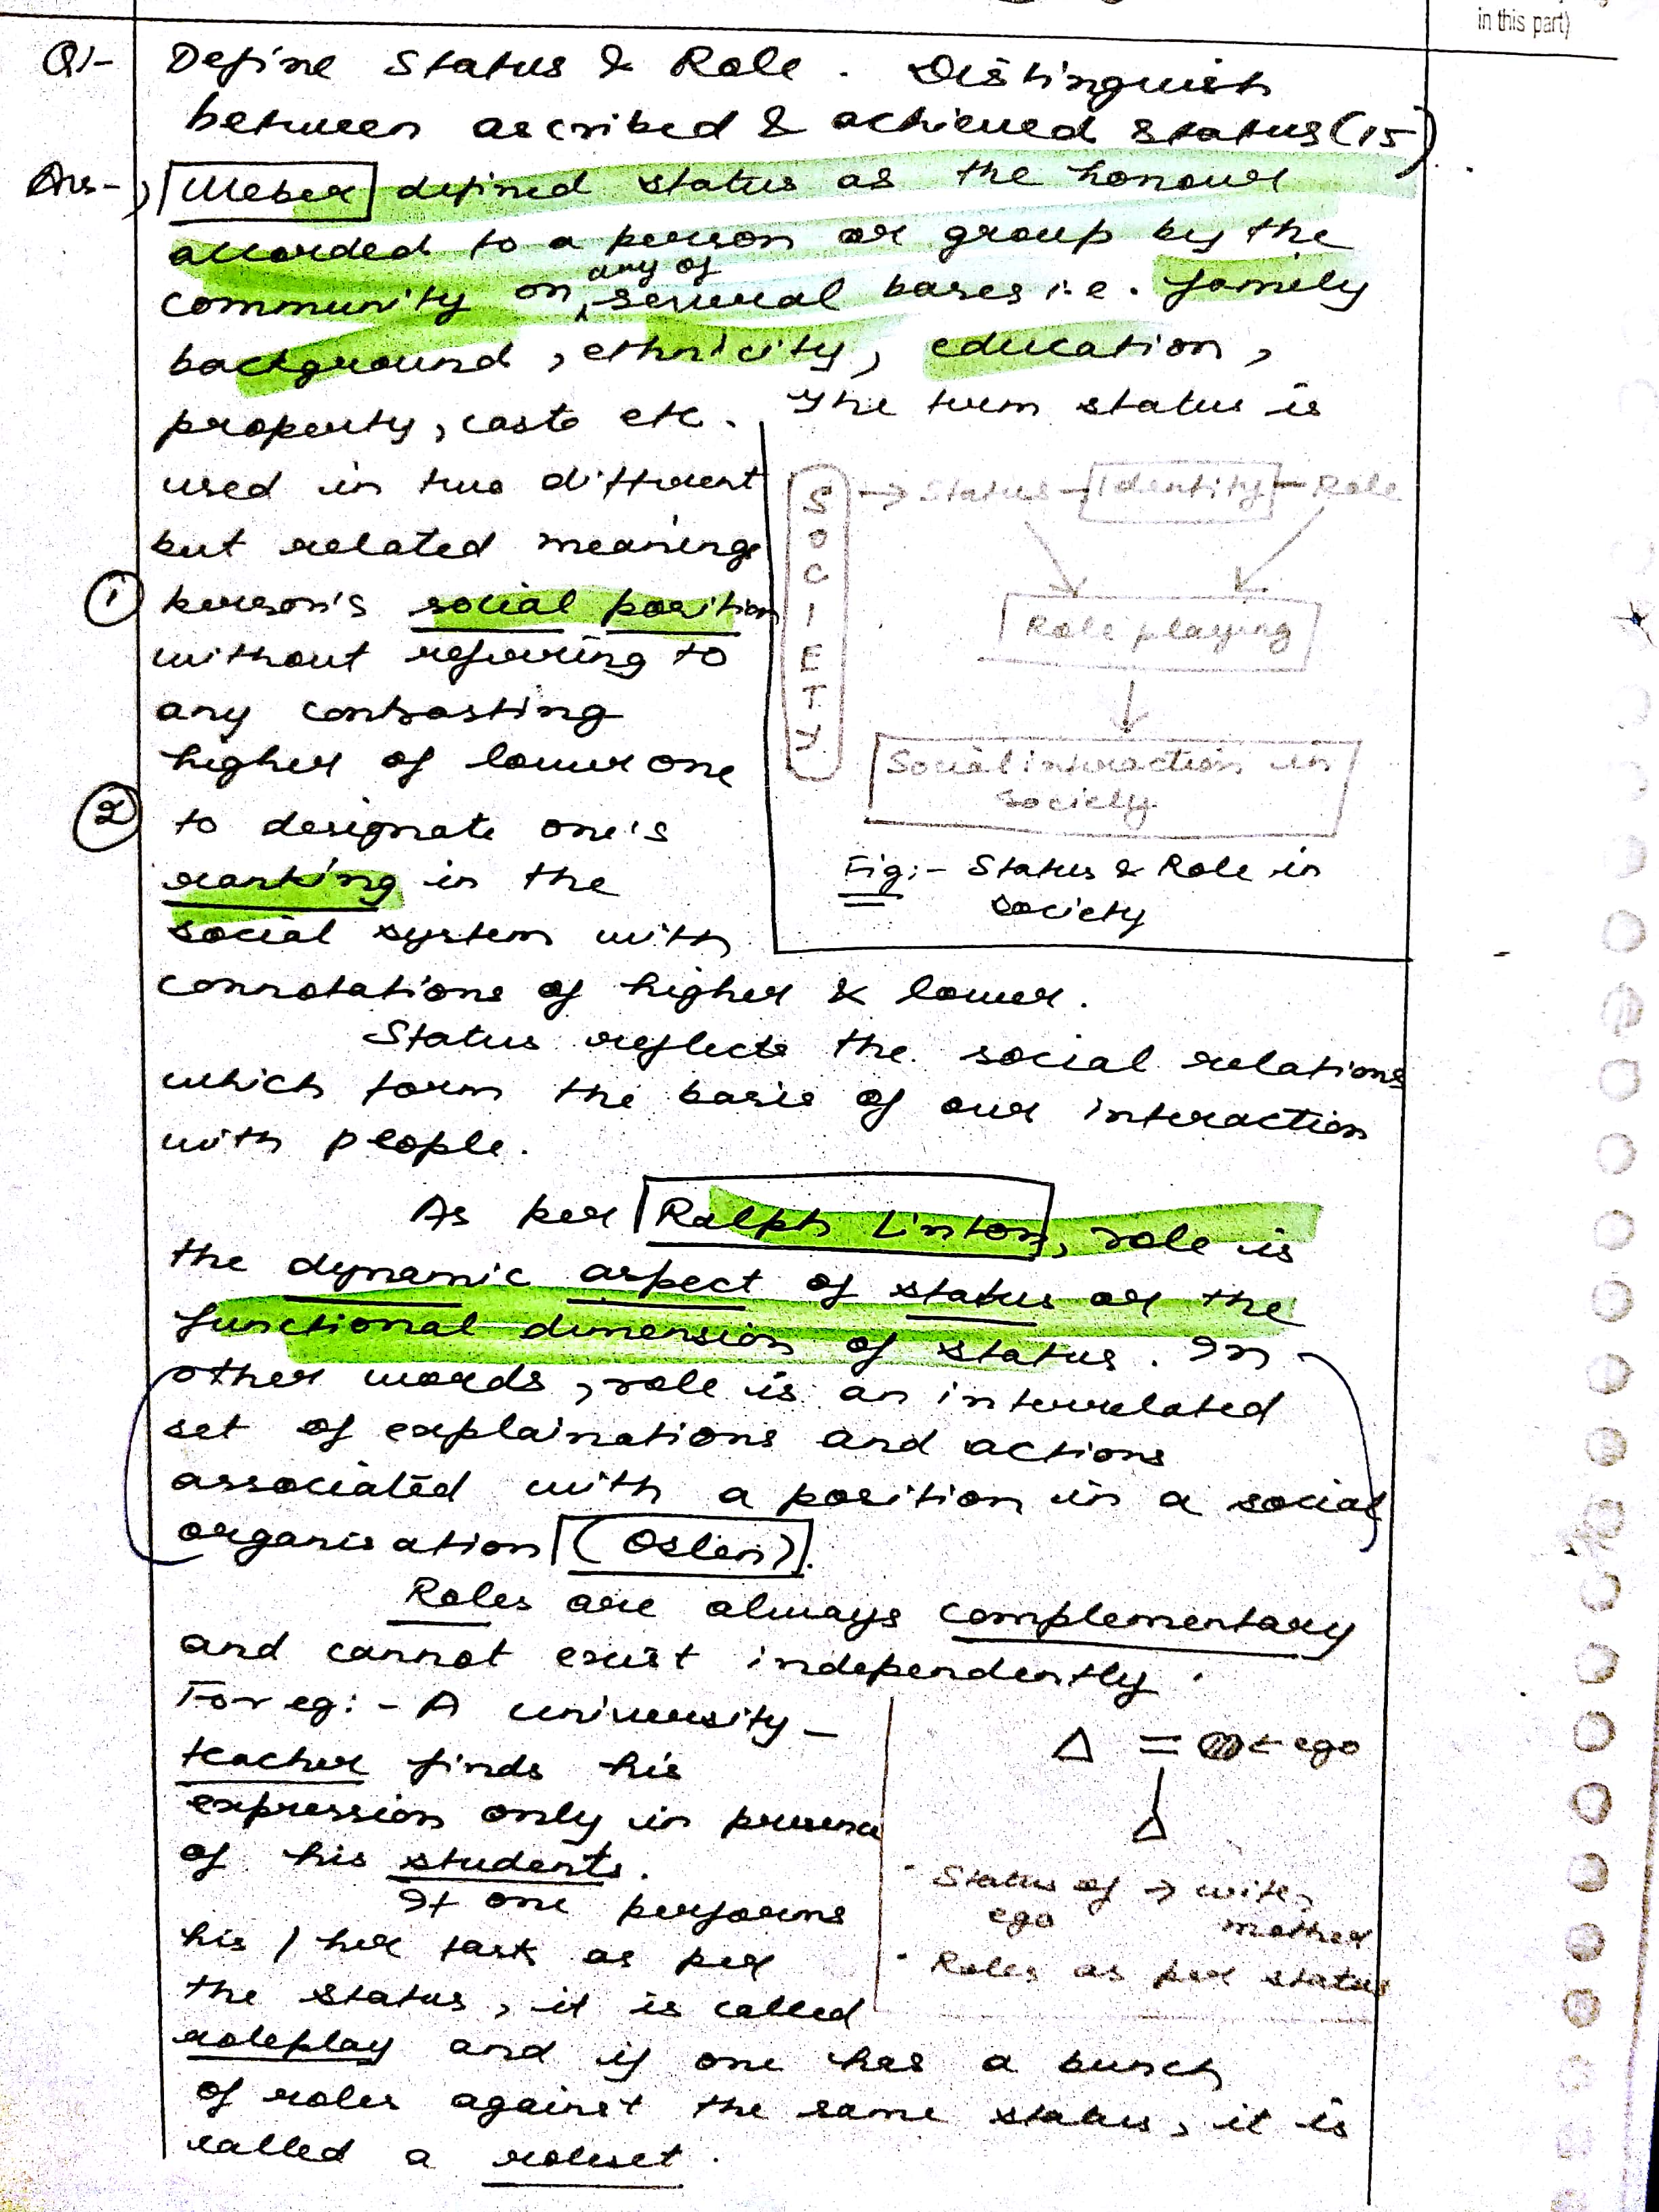 in this part)
Q1- Define Status & Role. Distinguish
between ascribed & achieved status (15)
Ans-, Weber defined status as the honour
accorded to a person or group by the
community on any of several bases i.e. family
background, ethnicity, education,
property, caste etc. The term status is
used in two different
but related meanings
① person's social position
without referring to
any contrasting
higher of lower one
② to designate one's
ranking in the
social system with
connotations of higher & lower.
SOCIETY → Status - Identity - Role
Role playing
Social interaction in
society
Fig:- Status & Role in
society
Status reflects the social relations
which form the basis of our interaction
with people.
As per Ralph Linton, role is
the dynamic aspect of status or the
functional dimension of status. In
other words, role is an interrelated
set of explainations and actions
associated with a position in a social
organisation (Oslen).
Roles are always complementary
and cannot exist independently.
For eg:- A university-
teacher finds his
expression only in presence
of his students.
If one performs
his / her task as per
the status, it is called
roleplay and if one has a bunch
of roles against the same status, it is
called a roleset.
Δ = ← ego
Δ
• Status of → wife,
ego mother
• Roles as per status